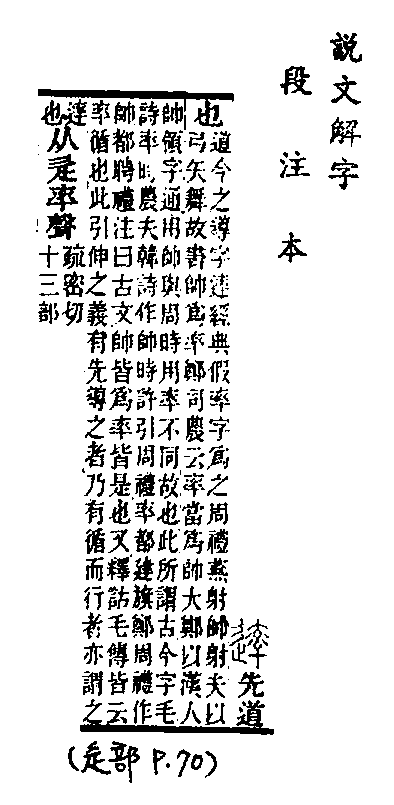 說文解字
段注本
䢦先道
也道今之導字䢦經典假率字爲之周禮燕射帥射夫以
弓矢舞故書帥爲率鄭司農云率當爲帥大鄭以漢人
帥領字通用帥與周時用率不同故也此所謂古今字毛
詩率時農夫韓詩作帥時許引周禮率都建旗鄭周禮作
帥都聘禮注曰古文帥皆爲率皆是也又釋詁毛傳皆云
率循也此引伸之義有先導之者乃有循而行者亦謂之
䢦
也从辵率聲疏密切
十三部
(辵部 P.70)